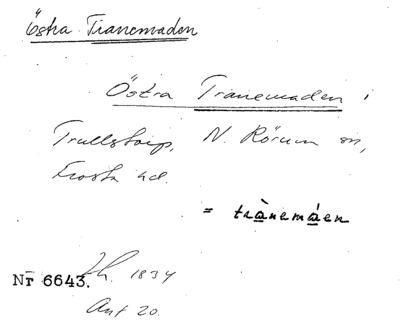 Östra Tranemaden
Östra Tranemaden i
Trullstorp, N. Rörum sn,
Frosta hd.
= trànemáen
Lh. 1834
Nr 6643.
Ant 20.